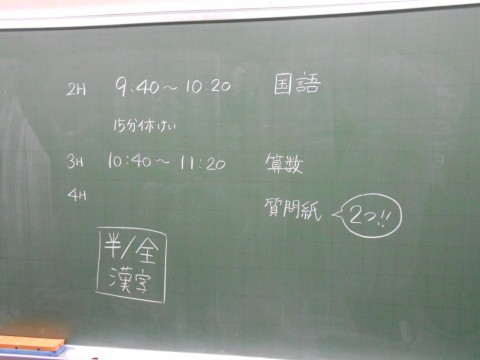 2H 9.40～10:20 国語
15分休けい
3H 10:40～11:20 算数
4H
質問紙 2つ!!
半/全
漢字